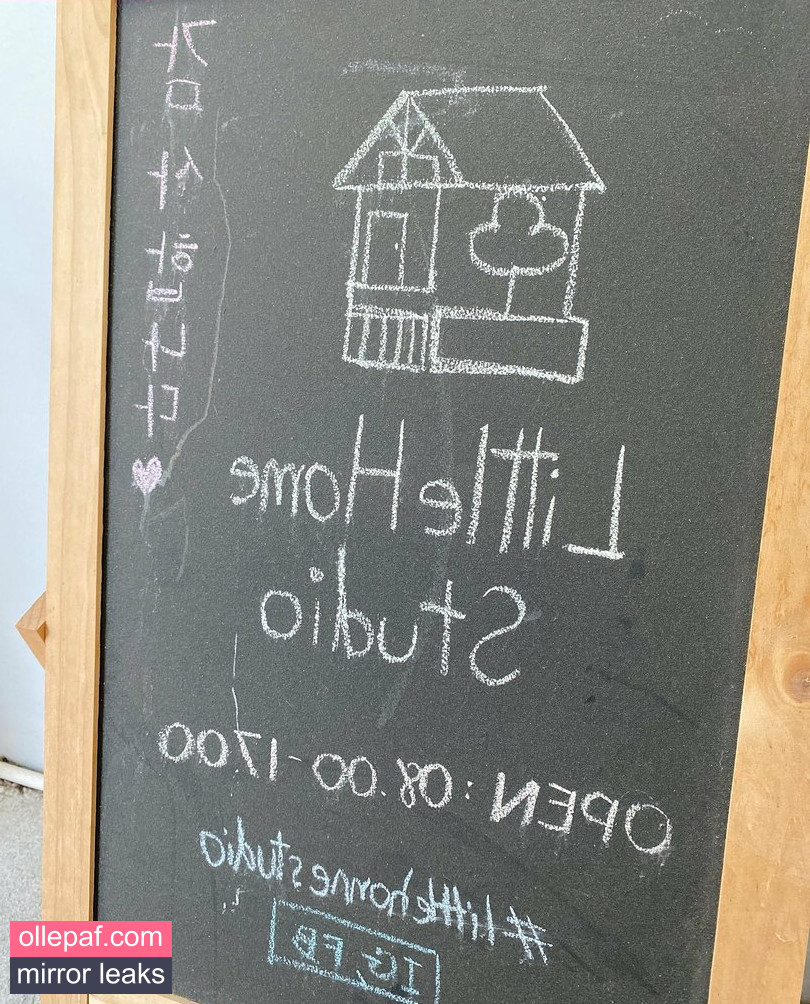 감사합니다
LittleHome
Studio
OPEN : 08.00-17.00
#littlehomestudio
IG, FB
ollepaf.com
mirror leaks